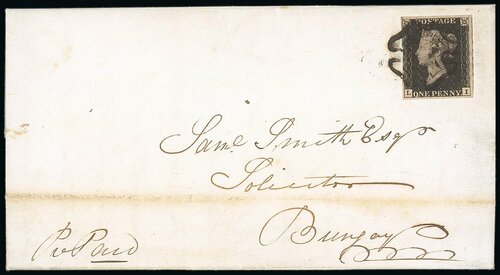 POSTAGE
L ONE PENNY I
Saml Smith Esqr
Solicitor
Bungay
Pre Paid